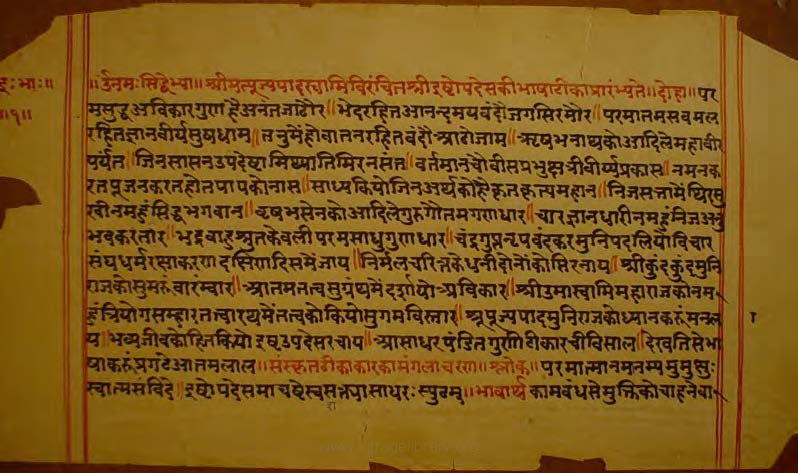 ष्ट्रः भाः॥
॥ॐ नमः सिद्धेभ्यः॥ श्रीमत्पूज्यपादस्वामि विरंचित श्रीइष्टोपदेसकी भाषाटीका प्रारंभ्यते॥ दोहा॥ पर
म सुद्ध अविकार गुण है अनंत जा ठौर॥ भेदरहित आनन्दमय वंदौ जग सिरमौर॥ परमातम सब मल
रहित ज्ञान वीर्य सुष धाम॥ तनुमें हो वा तन रहित वंदौं आठो जाम॥ ऋषभनाथको आदिले महावीर
पर्यंत॥ जिनसासन उपदेष्टा मिथ्यातिमिर नसंत॥ वर्तमान चौवीस प्रभु क्षत्री वीर्य्य प्रकास॥ नमन क
रत पूजन करत होत पापको नास॥ साध्य कियो जिन अर्थको है कृतकृत्य महान॥ निजसत्तामें थिर सु
खी नमहुं सिद्ध भगवान॥ वृषभसेनको आदिले गुरु गौतम गणधार॥ चार ज्ञानधारी नमहुं निज अनु
भव करतार॥ भद्रवाहु श्रुतकेवली परमसाधु गुणधार॥ चंद्रगुप्त नृप वंद कर मुनिपद लियो विचार
संघ धर्म रसा करण दक्षिण दिसमें जाय॥ निर्मल चरित्रके धनी दोनोंको सिरनाय॥ श्रीकुंदकुंद मुनि
राजको सुमरु वारम्वार॥ आतमतत्व सुग्रंथमें दर्शायो अविकार॥ श्रीउमास्वामि महाराजको नम
हुं त्रियोग सम्हार तत्वारथमें तत्वको कियो सुगम विस्तार॥ श्रूपूज्यपाद मुनिराजको ध्यान करुं मन ल
य॥ भव्यजीवके हित कियो इष्ट उपदेस रचाय॥ आसाधर पंडित गुणी टीका रची विसाल॥ देखि तिसे भा
षा करुं प्रगटे आतम लाल॥ संस्कृत टीकाकारका मंगलाचरण॥ श्लोक॥ परमात्मानमनम्य मुमुक्षुः
स्वात्मसंविदे॥ इष्टोपदेसमाचष्टे स्वसक्त्यासाधरः स्पुटम्॥ भावार्थ काम वंधसे मुक्तिको चाहनेवा